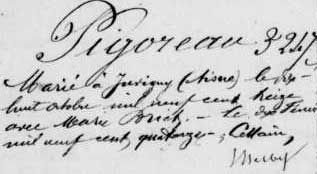 Pigoreau 3247
Marié à Juvigny (Aisne) le dix
huit octobre mil neuf cent treize
avec Marie — le dix
mil neuf cent quatorze,